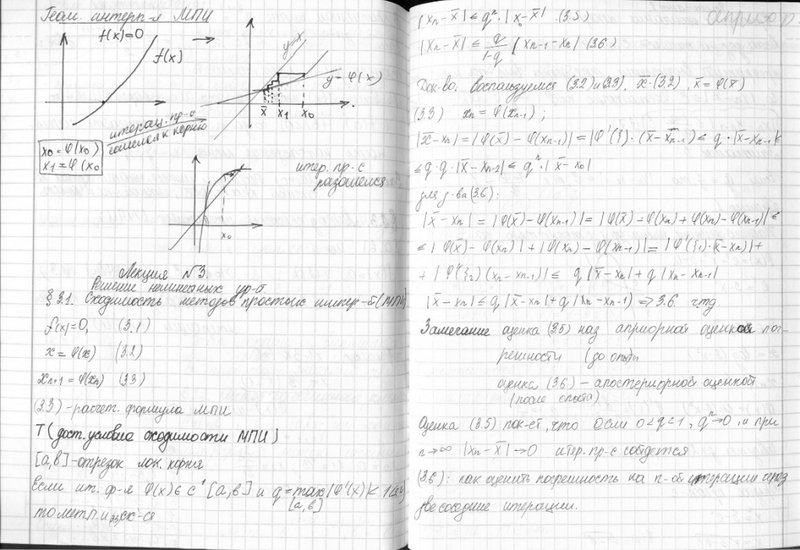 Геом. интерп-я МПИ
f(x)=0
f(x)
y=x
y=φ(x)
x̄ x₁ x₀
x₀=φ(x₀)
x₁=φ(x₀
итерац. пр-с
сошелся к корню
x₀
итер. пр-с
разошелся
Лекция №3.
Решение нелинейных ур-й
§ 3.1. Сходимость методов простых итер-й (МПИ)
f(x)=0, (3.1)
x=φ(x) (3.2)
xₙ₊₁=φ(xₙ) (3.3)
(3.3) - расчет. формула МПИ
Т (дост. условия сходимости МПИ)
[a,b] - отрезок лок. корня
Если ит. ф-я φ(x)∈C¹[a,b] и q=max|φ'(x)|<1
[a,b]
то мет.
|xₙ-x̄|≤qⁿ·|x₀-x̄| (3.5)
|xₙ-x̄|≤q/(1-q)|xₙ₋₁-xₙ| (3.6)
Док-во. воспользуемся (3.2) и (3.3), x̄·(3.2), x̄=φ(x̄)
(3.3) xₙ=φ(xₙ₋₁);
|x̄-xₙ|=|φ(x̄)-φ(xₙ₋₁)|=|φ'(ξ)·(x̄-xₙ₋₁)≤q·|x̄-xₙ₋₁|≤
≤q·q·|x̄-xₙ₋₂|≤qⁿ·|x̄-x₀|
для д-ва (3.6):
|x̄-xₙ|=|φ(x̄)-φ(xₙ₋₁)=|φ(x̄)-φ(xₙ)+φ(xₙ)-φ(xₙ₋₁)|≤
≤|φ(x̄)-φ(xₙ)|+|φ(xₙ)-φ(xₙ₋₁)|=|φ'(ξ₁)·(x̄-xₙ)|+
+|φ'(ξ₂)(xₙ-xₙ₋₁)|≤q|x̄-xₙ|+q|xₙ-xₙ₋₁|
|x̄-xₙ|≤q|x̄-xₙ|+q|xₙ-xₙ₋₁) ⇒ 3.6. чтд
Замечание оценка (3.5) наз априорной оценкой пог-
решности (до опыта
оценка (3.6) - апостериорной оценкой
(после опыта)
Оценка (3.5) пок-ет, что если 0<q<1, qⁿ→0, и при
n→∞ |xₙ-x̄|→0 итер. пр-с сойдется
(3.6): как оценить погрешность на n-ой итерации через
две соседние итерации.